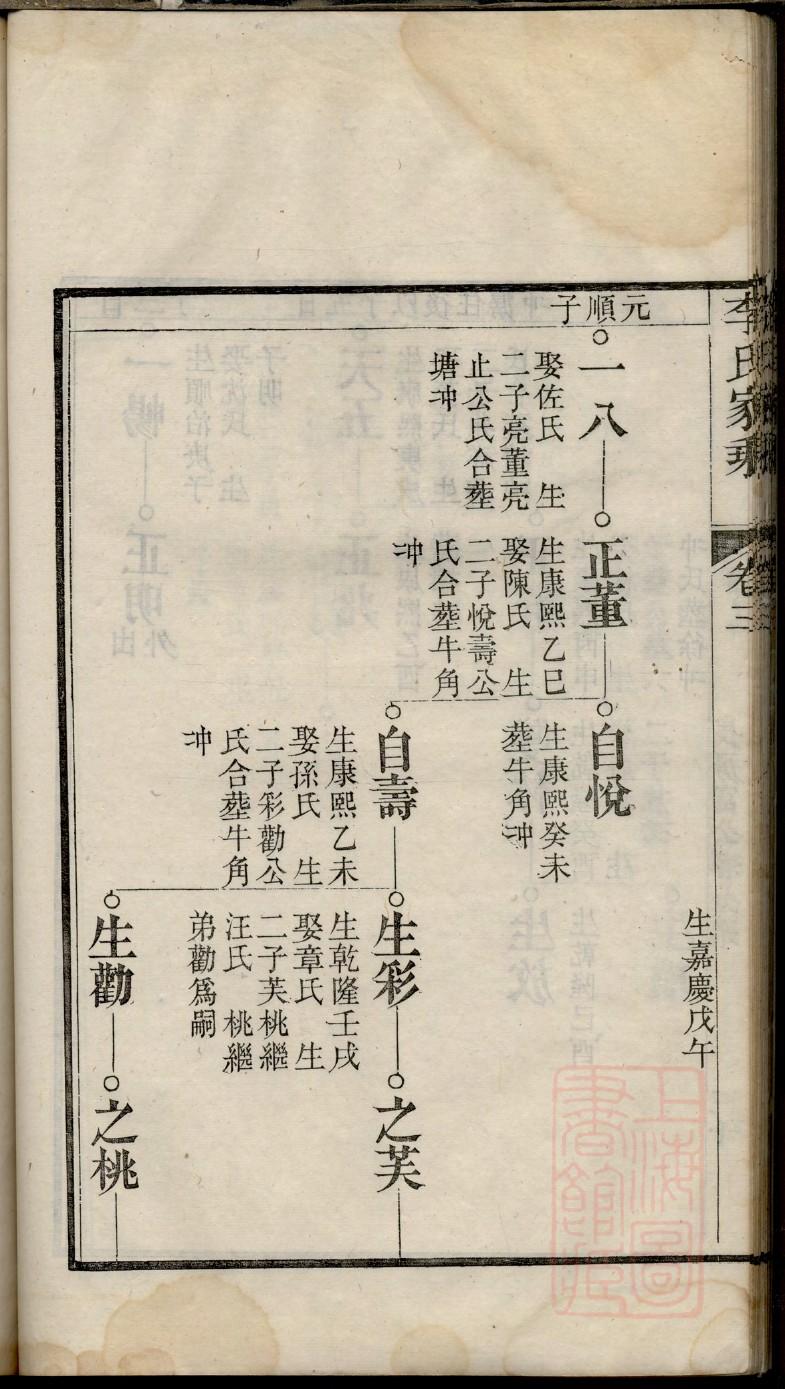 李氏家乘
卷三
生嘉慶戊午
元順子
一八
娶佐氏 生
二子亮董亮
止公氏合塟
塘冲
正董
生康熙乙巳
娶陳氏 生
二子悅壽公
氏合塟牛角
冲
自悅
生康熙癸未
塟牛角冲
自壽
生康熙乙未
娶孫氏 生
二子彩勸公
氏合塟牛角
冲
生彩
生乾隆壬戌
娶章氏 生
二子芙桃繼
汪氏 桃繼
弟勸爲嗣
之芙
生勸
之桃
上海圖
書館藏